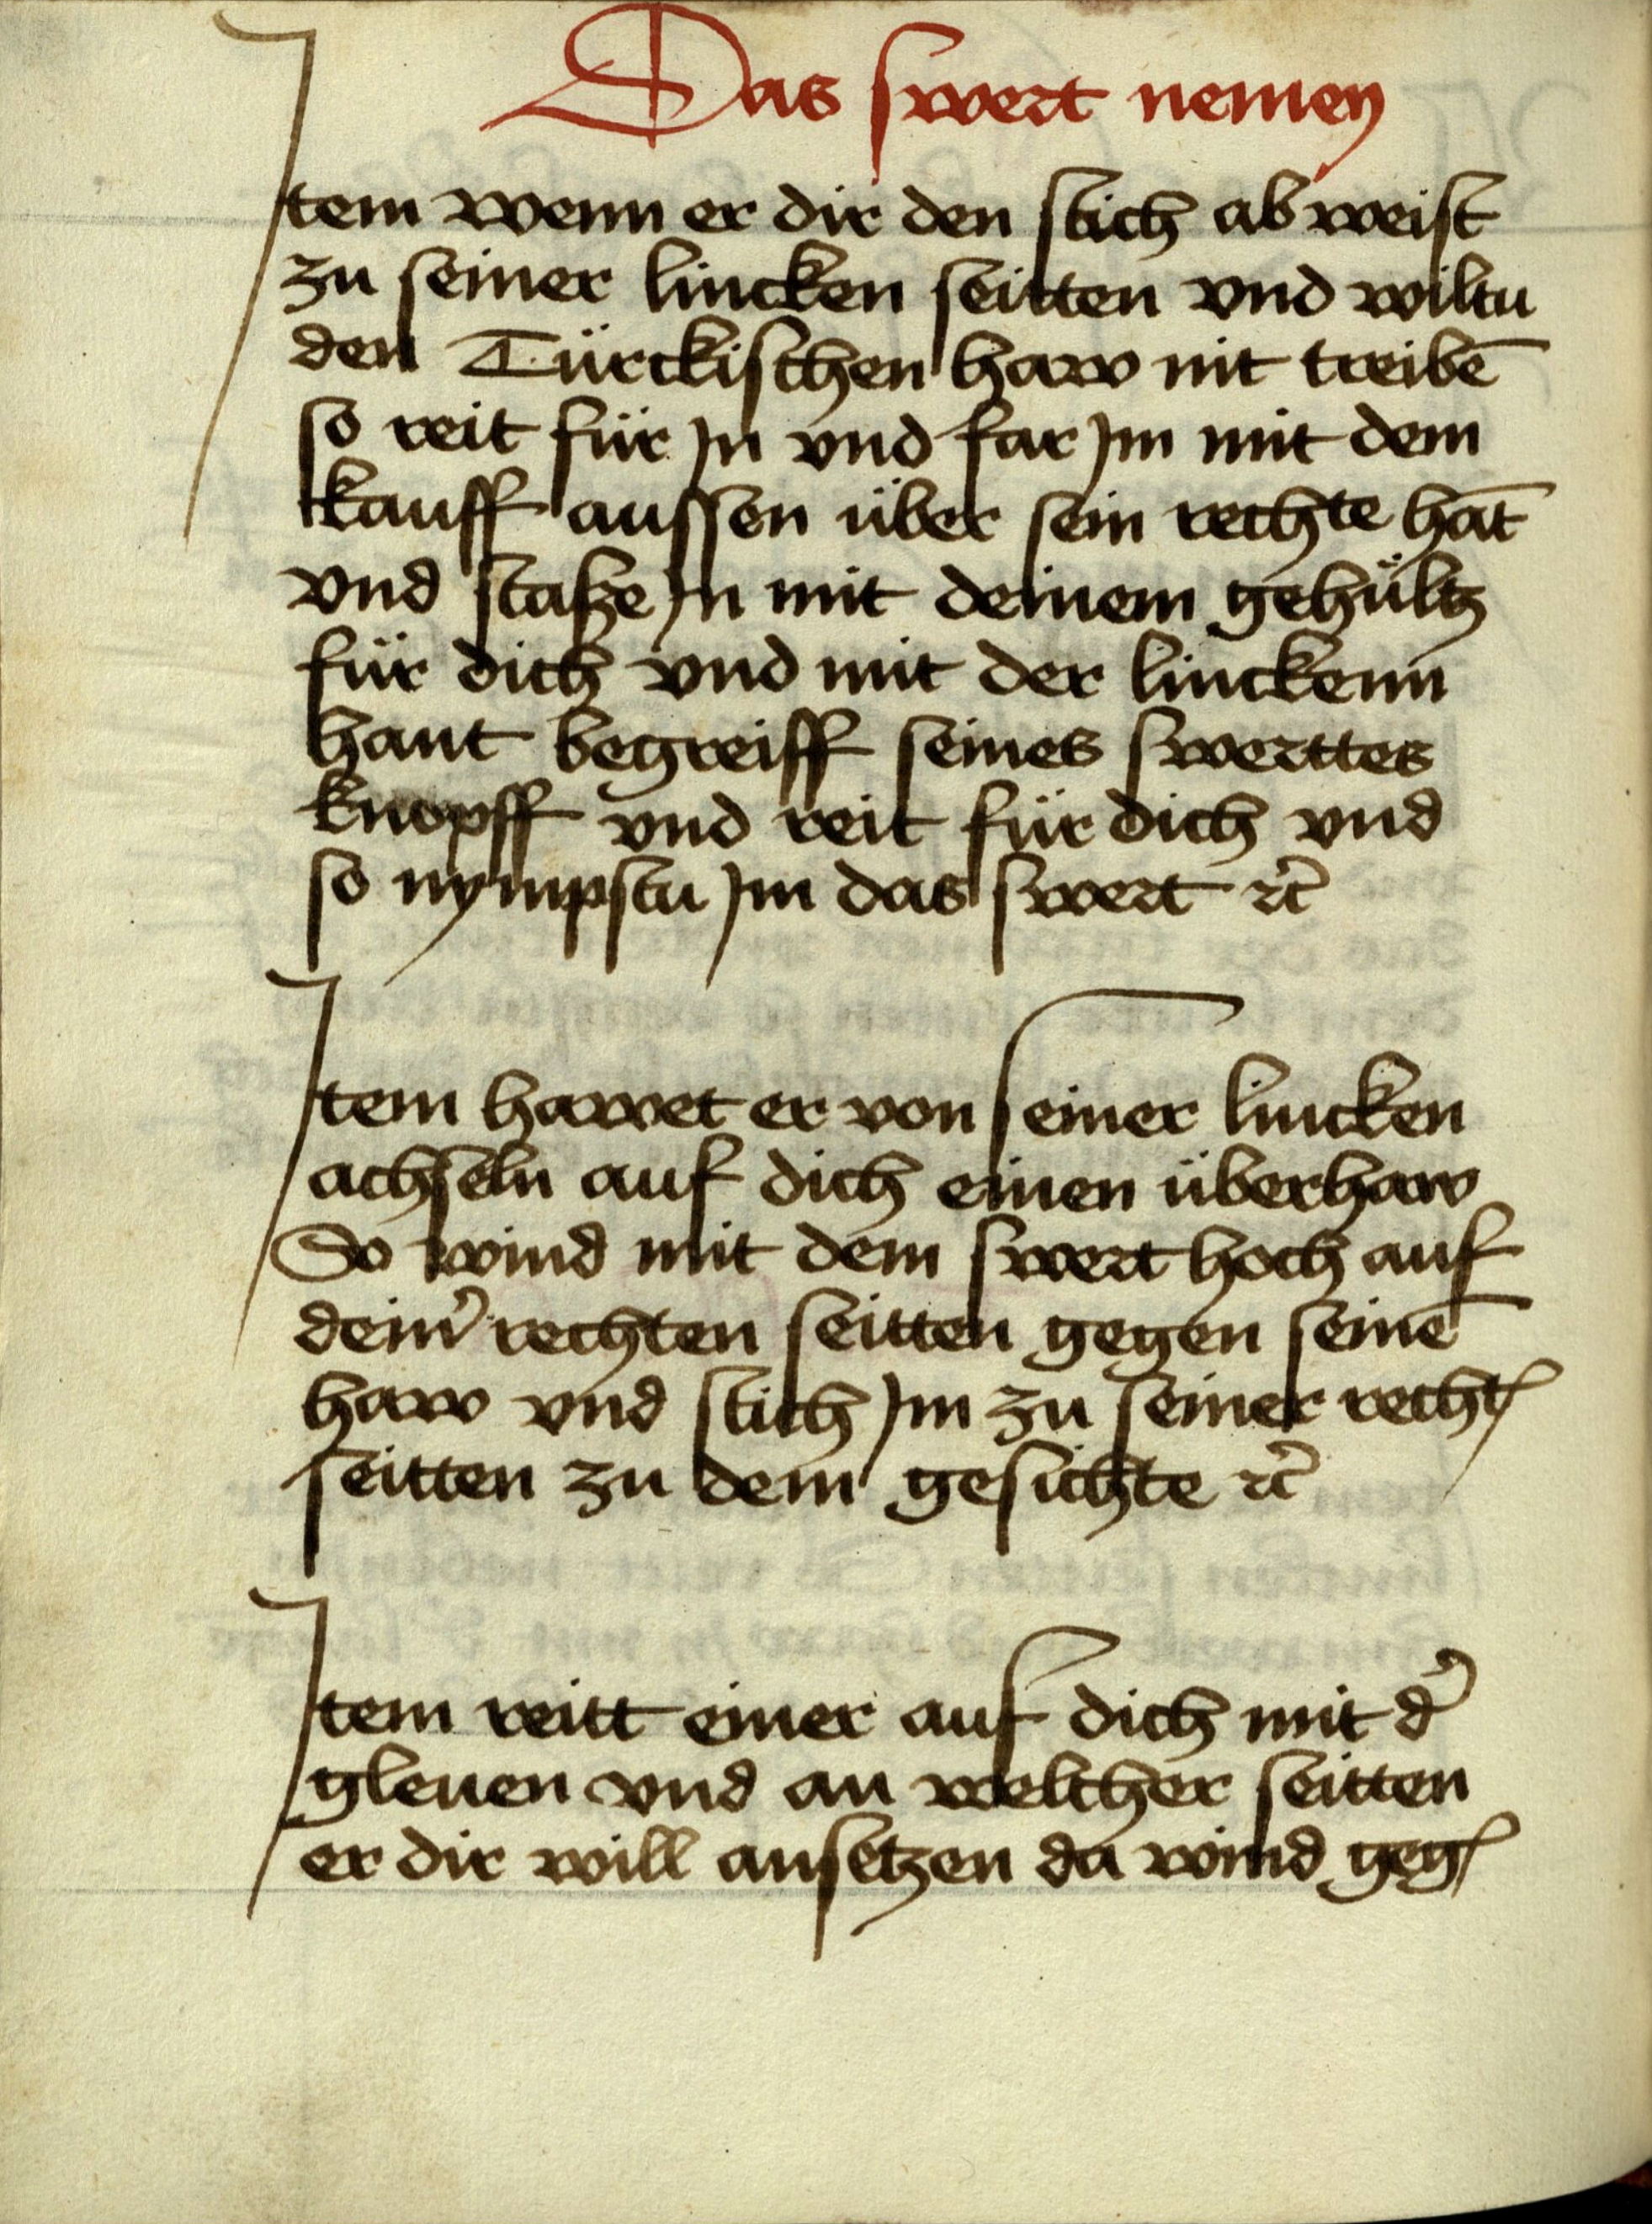 Das swert nemen
Jtem wenn er dir den stich ab weist
zu seiner lincken seitten vnd wiltu
den Türckischen haw nit treibē
so reit für jn vnd far jm mit dem
kauff aussen über sein rechte hāt
vnd staße jn mit deinem gehültz
für dich vnd mit der linckenn
hant begreiff seines swerttes
knopff vnd reit für dich vnd
so nympstu jm das swert ꝛc̃
Jtem hawet er von seiner lincken
achseln auf dich einen überhaw
So wind mit dem swert hoch auf
dein᾽ rechten seitten gegen seinē
haw vnd stich jm zu seiner rechtꝭ
seitten zu dem gesichte ꝛc̃
Jtem reitt einer auf dich mit d᾽
gleuen vnd an welcher seitten
er dir will ansetzen da wind gegꝭ